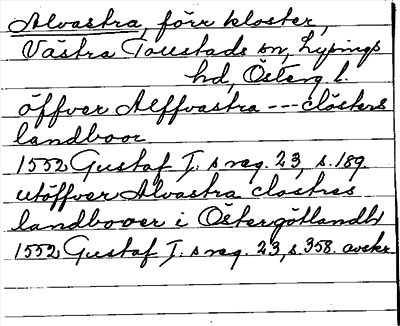 Alvastra, förr kloster,
Västra Tollstads sn, Lysings
hd, Österg l.
öffver Alffvastra --- clösters
landboor
1552 Gustaf I. s reg. 23, s. 189
utöffver Alvastra closters
landbooer i Östergötlandh
1552 Gustaf I. s reg. 23, s. 358. avskr.